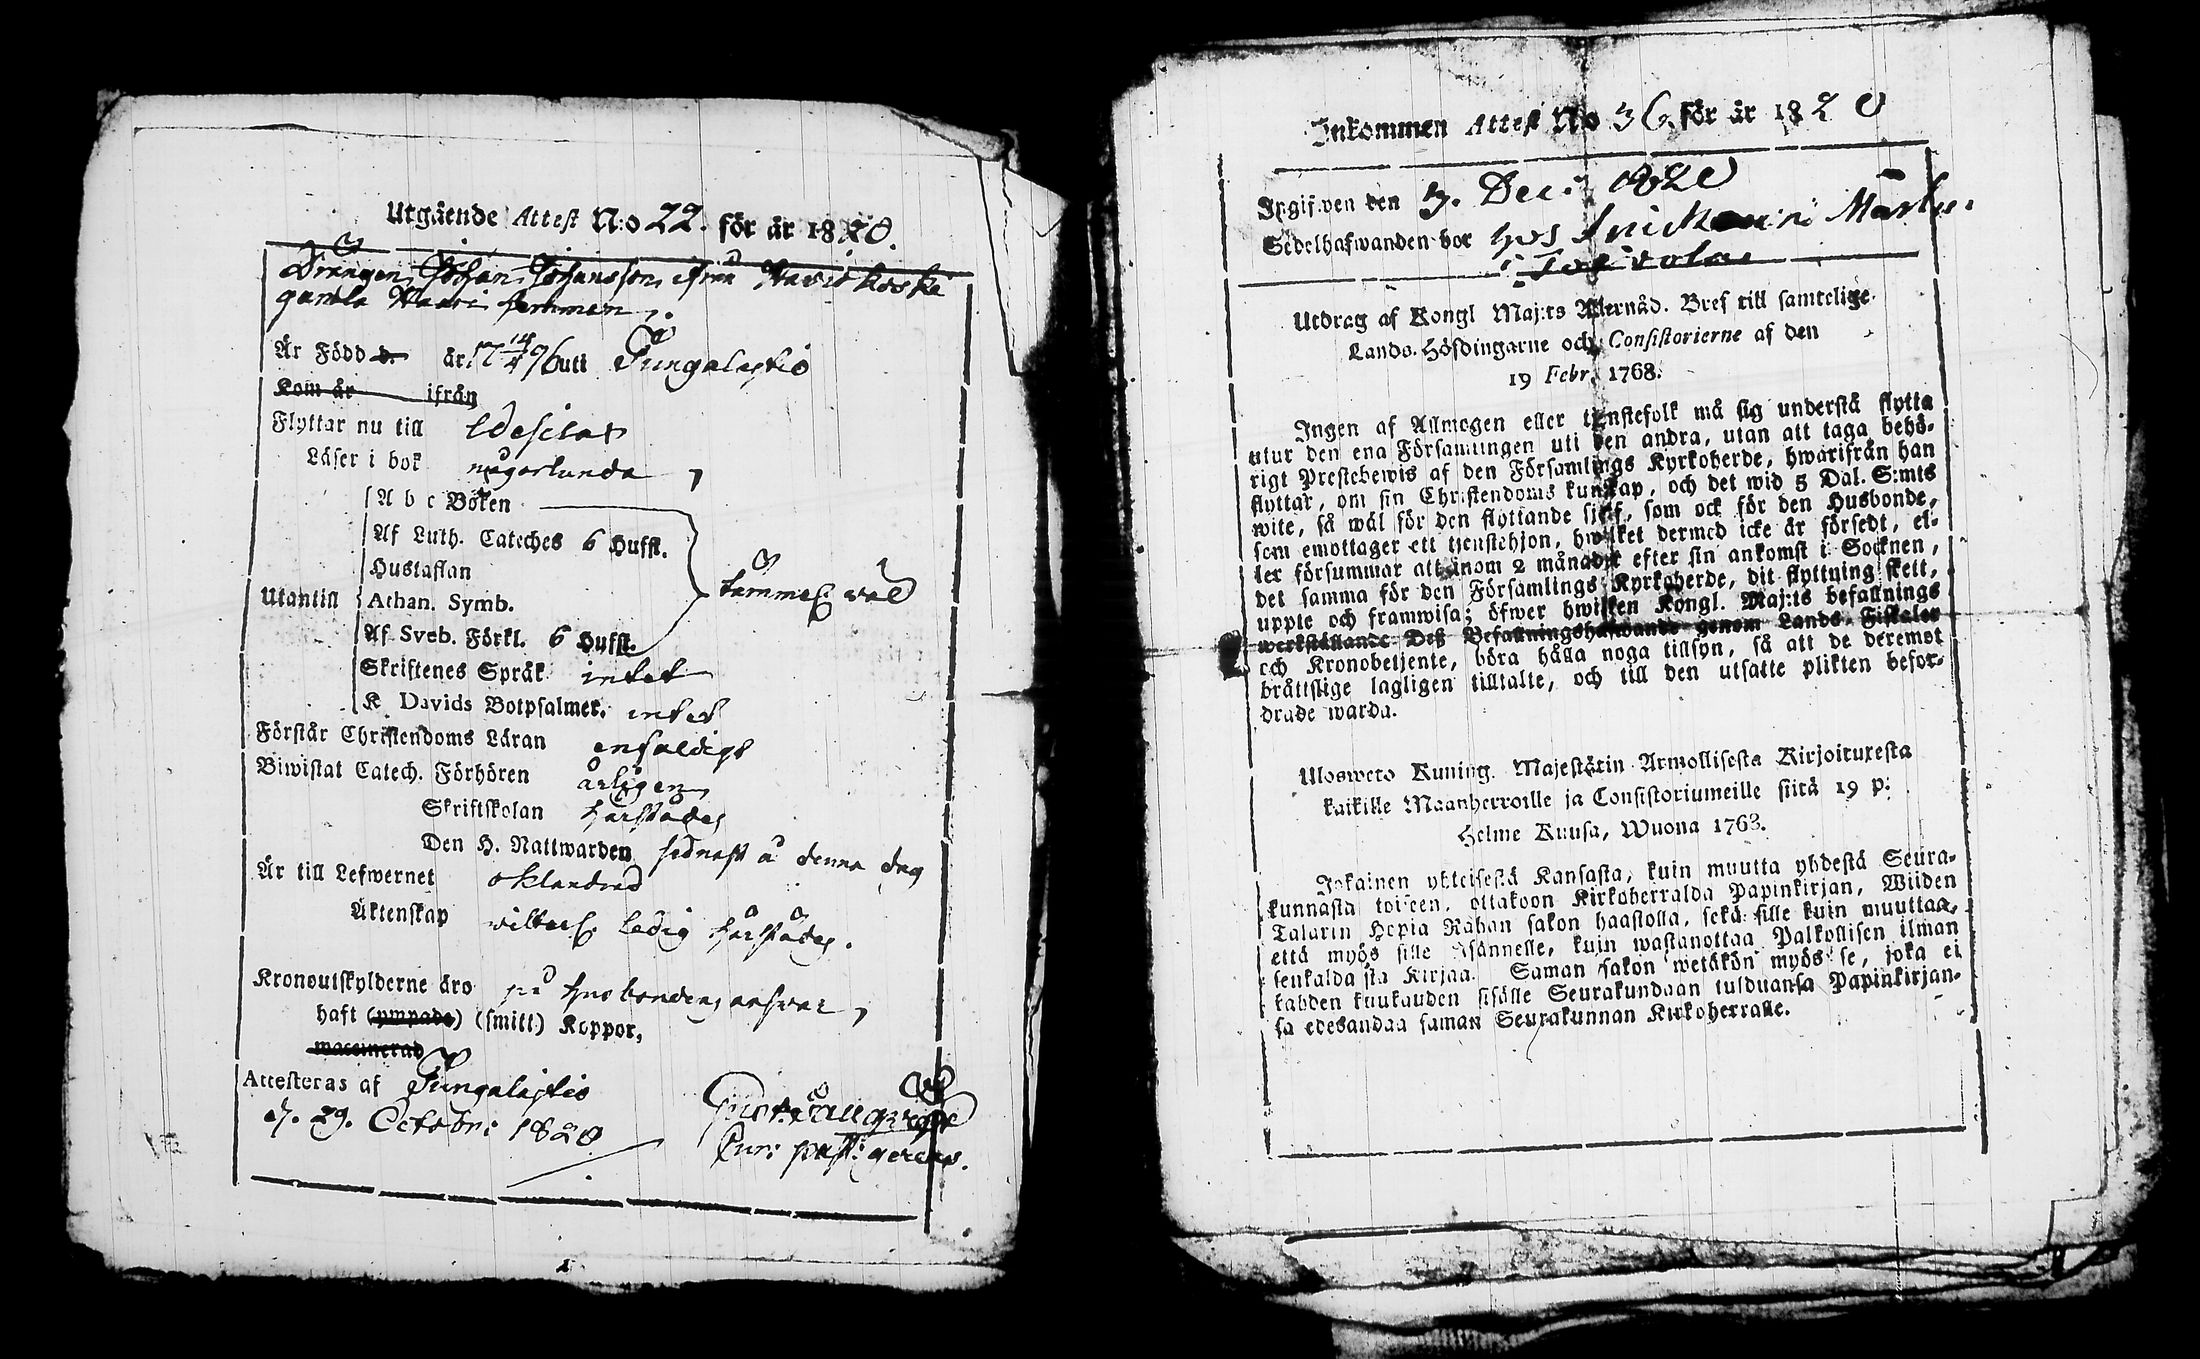 Utgående Attest N:o 22. för år 1820.
Drängen Johan Johansson ifrån Havio koski
gamla Waari hemman,
Är Född d. år 17 14/4 96 uti Pungalaitio
Kom år ifrån
Flyttar nu till
Läser i bok någorlunda,
A b c Boken
Af Luth. Cateches 6 Hufst.
Hustaflan
Utantill Athan. Symb. tämmel. wäl
Af Sveb. Förkl. 6 Hufst.
Skriftenes Språk intet
K Davids Botpsalmer. intet
Förstår Christendoms Läran enfaldigt
Biwistat Catech. Förhören årligen,
Skriftskolan härstädes
Den H. Nattwarden sednast å denna dag
Är till Lefwernet oklandrad
Äktenskap witterl. ledig härstädes.
Kronoutskylderne äro på husbondens answar,
haft (ympade) (smitt) Koppor,
waccinerad
Attesteras af Pungalaitio
d. 29. Octobr: 1820
past: gerens.
Inkommen Attest No 36. för år 1820
Ingifwen den 3. Dec: 1820
Sedelhafwanden bor hos
i Toivola
Utdrag af Kongl Maj:ts Allernåd. Bref till samtelige
Lands-Höfdingarne och Consistorierne af den
19 Febr. 1768.
Ingen af Allmogen eller tjenstefolk må sig understå flytta
utur den ena Församlingen uti den andra, utan att taga behö-
rigt Prestebewis af den Församlings Kyrkoherde, hwarifrån han
flyttar, om sin Christendoms kunskap, och det wid 5 Dal. S:mts
wite, så wäl för den flyttande sjelf, som ock för den Husbonde,
som emottager ett tjenstehjon, hwilket dermed icke är försedt, el-
ler försummar att inom 2 månader efter sin ankomst i Socknen,
det samma för den Församlings Kyrkoherde, dit flyttning skett,
uppte och framwisa; öfwer hwilken Kongl. Maj:ts befallnings
werkställande Deß Befallningshafwande genom Lands-Fiskaler
och Kronobetjente, böra hålla noga tillsyn, så att de deremot
bråttslige lagligen tilltalte, och till den utsatte plikten befor-
drade warda.
Ulosweto Kuning. Majestätin Armollisesta Kirjoituxesta
kaikille Maanherroille ja Consistoriumeille siitä 19 p:
Helme Kuusa, Wuona 1763.
Jokainen yhteisestä Kansasta, kuin muutta yhdestä Seura-
kunnasta toiseen, ottakoon Kirkoherralda Papinkirjan, Wiiden
Talarin Hopia Rahan sakon haastolla, sekä sille kuin muuttaa,
että myös sille Isännelle, kuin wastanottaa Palkollisen ilman
senkaldaista Kirjaa. Saman sakon wetäkön myös se, joka ei
kahden kuukauden sisälle Seurakundaan tulduansa Papinkirjan-
sa edesandaa saman Seurakunnan Kirkoherralle.